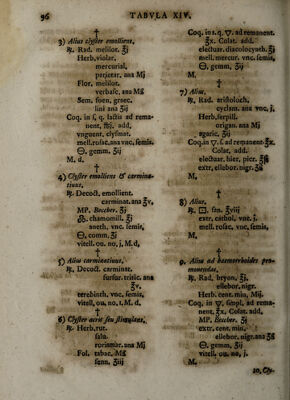 96 TABVLA XIV.
†
3) Alius clyster emolliens.
℞. Rad. melilot. ℥j
Herb. violar.
mercurial.
parietar. ana Mj
Flor. melilot.
verbasc. ana Mß
Sem. foen. graec.
lini ana ʒij
Coq. in s. q. lactis ad rema-
nent. ℔j. add.
vnguent. clysmat.
mell. rosac. ana vnc. semis.
🜔. gemm. ʒij
M. d.
†
4) Clyster emolliens & carmina-
tiuus.
℞. Decoct. emollient.
carminat. ana ℥v.
MP. Beccher. ʒj
chamomill. ʒj
aneth. vnc. semis,
🜔. comm. ʒj
vitell. ou. no, j, M. d,
†
5) Alius carminatiuus.
℞. Decoct. carminat.
furfur. tritic. ana
℥v.
terebinth. vnc. semis,
vitell. ou. no, 1, M. d,
†
6) Clyster acris seu stimulans.
℞. Herb. rut.
salu.
rorismar. ana Mj
Fol. tabac. Mß
senn. ʒiij
Coq. in s. q. 🜄. ad remanent.
℥x. Colat. add.
electuar. diacolocynth. ʒj
mell. mercur. vnc. semis,
🜔. gemm. ʒij
M.
†
7) Alius.
℞. Rad. aristoloch.
cyclam. ana vnc. j,
Herb. serpill.
origan. ana Mj
agaric. ʒij
Coq. in 🜄. s. ad remanent. ℥x.
Colat. add.
electuar. hier. picr. ℥ß
extr. ellebor. nigr. ʒß
M,
†
8) Alius.
extr. cathol. vnc. j.
mell. rosac. vnc. semis,
M,
†
9. Alius ad haemorrhoides pro-
mouendas.
℞. Rad. bryon. ʒj,
ellebor. nigr.
Herb. cent. min, Mij.
Coq. in 🜄. simpl. ad rema-
nent. ℥x. Colat. add.
MP. Beccher. ʒj
extr. cent. min.
ellebor. nigr. ana ʒß
🜔. gemm. ʒij
vitell. ou. no, j.
M,
10, Cly-